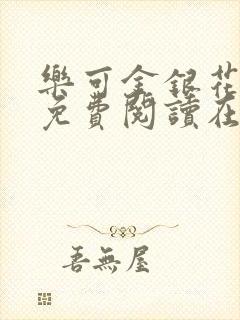 樂可金銀花
免費閱讀在
吾無屋